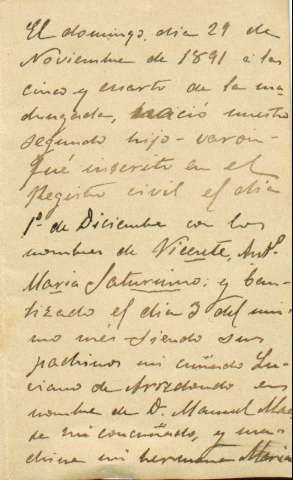 El domingo, dia 29 de
Noviembre de 1891 a las
cinco y cuarto de la ma
drugada, nació nuestro
segundo hijo - varon -
Fué inscrito en el
Registro civil el dia
1º de Diciembre con los
nombres de Vicente, Antº
Maria Saturnino; y bau-
tizado el dia 3 del mis
mo més siendo sus
padrinos mi cuñado Lu-
ciano de Arredondo en
nombre de D. Manuel
de mi concuñado, y ma-
drina mi hermana Maria